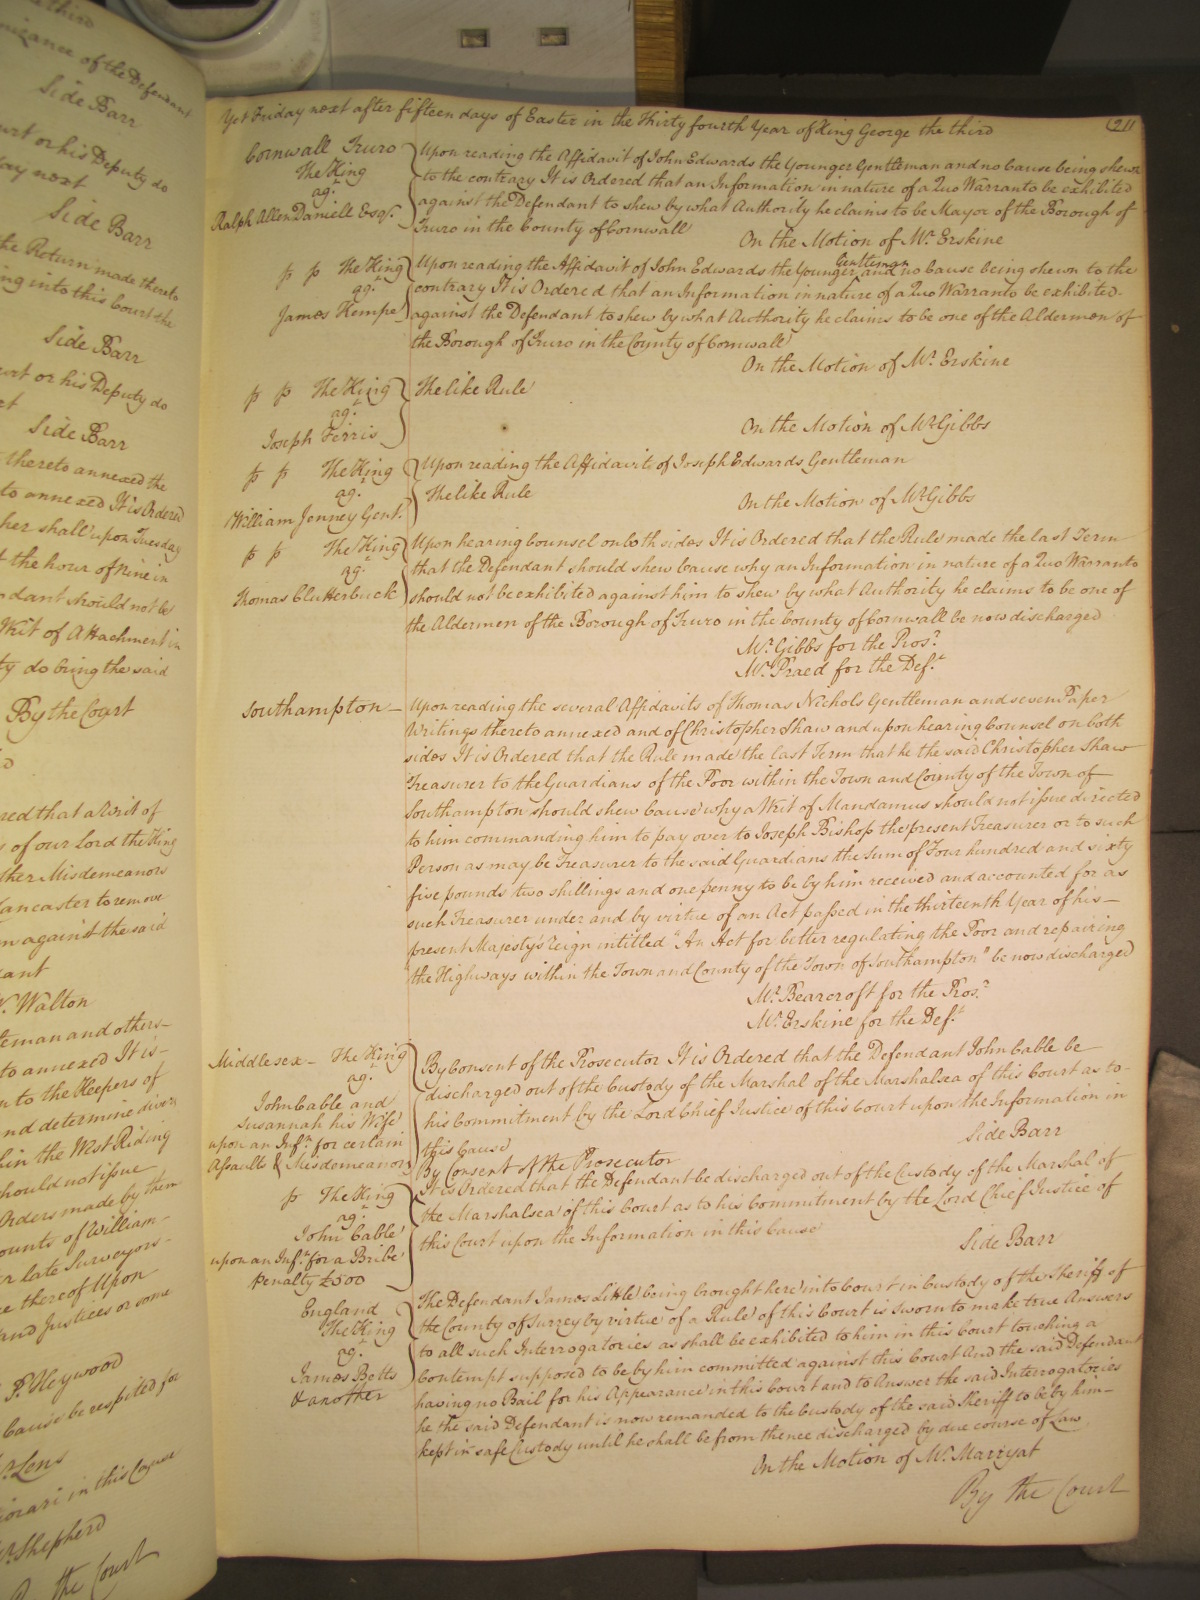 Yet Friday next after fifteen days of Easter in the Thirty fourth Year of King George the third
211
Cornwall Truro
The King
agt
Ralph Allen Daniell Esqr.
Upon reading the Affidavit of John Edwards the Younger Gentleman and no Cause being shewn
to the contrary It is Ordered that an Information in nature of a Quo Warranto be exhibited
against the Defendant to shew by what Authority he claims to be Mayor of the Borough of
Truro in the County of Cornwall
On the Motion of Mr. Erskine
p p The King
agt
James Kempe
Gentleman
Upon reading the Affidavit of John Edwards the Younger and no Cause being shewn to the
contrary It is Ordered that an Information in nature of a Quo Warranto be exhibited
against the Defendant to shew by what Authority he claims to be one of the Aldermen of
the Borough of Truro in the County of Cornwall
On the Motion of Mr. Erskine
p p The King
agt
Joseph Ferris
The like Rule
On the Motion of Mr Gibbs
p p The King
agt
William Jenney Gent.
Upon reading the Affidavit of Joseph Edwards Gentleman
The like Rule
On the Motion of Mr Gibbs
p p The King
agt
Thomas Clutterbuck
Upon hearing Counsel on both sides It is Ordered that the Rule made the last Term
that the Defendant should shew Cause why an Information in nature of a Quo Warranto
should not be exhibited against him to shew by what Authority he claims to be one of
the Aldermen of the Borough of Truro in the County of Cornwall be now discharged
Mr. Gibbs for the Pros.r
Mr. Praed for the Def.t
Southampton
Upon reading the several Affidavits of Thomas Nichols Gentleman and seven Paper
Writings thereto annexed and of Christopher Shaw and upon hearing Counsel on both
sides It is Ordered that the Rule made the last Term that he the said Christopher Shaw
Treasurer to the Guardians of the Poor within the Town and County of the Town of
Southampton should shew Cause why a Writ of Mandamus should not issue directed
to him commanding him to pay over to Joseph Bishop the present Treasurer or to such
Person as may be Treasurer to the said Guardians the Sum of Four hundred and sixty
five pounds two shillings and one penny to be by him received and accounted for as
such Treasurer under and by virtue of an Act passed in the thirteenth Year of his
present Majesty's Reign intitled "An Act for better regulating the Poor and repairing
the Highways within the Town and County of the Town of Southampton" be now discharged
Mr. Bearcroft for the Pros.r
Mr. Erskine for the Def.t
Middlesex The King
agt
John Cable and
Susannah his Wife
upon an Inf.n for certain
Assaults & Misdemeanors
By Consent of the Prosecutor It is Ordered that the Defendant John Cable be
discharged out of the Custody of the Marshal of the Marshalsea of this Court as to
his Commitment by the Lord Chief Justice of this Court upon the Information in
this Cause
Side Barr
p The King
agt
John Cable
upon an Inf.n for a Bribe
Penalty £500
By Consent of the Prosecutor
It is Ordered that the Defendant be discharged out of the Custody of the Marshal of
the Marshalsea of this Court as to his Commitment by the Lord Chief Justice of
this Court upon the Information in this Cause
Side Barr
England
The King
agt
James Betts
& another
The Defendant James Little being brought here into Court in Custody of the Sheriff of
the County of Surrey by virtue of a Rule of this Court is sworn to make true Answers
to all such Interrogatories as shall be exhibited to him in this Court touching a
Contempt supposed to be by him committed against this Court And the said Defendant
having no Bail for his Appearance in this Court and to Answer the said Interrogatories
he the said Defendant is now remanded to the Custody of the said Sheriff to be by him
kept in safe Custody until he shall be from thence discharged by due course of Law
On the Motion of Mr. Marryat
By the Court
of the Defendant
Side Barr
or his Deputy do
next
Side Barr
the Return made thereto
into this Court the
Side Barr
or his Deputy do
Side Barr
thereto annexed the
to annexed It is Ordered
her shall upon Tuesday
the hour of Nine in
should not be
Writ of Attachment in
do bring the said
By the Court
that a Writ of
of our Lord the King
other Misdemeanors
Lancaster to remove
against the said
Walton
and others
to annexed It is
to the Keepers of
and determine divers
in the West Riding
should not issue
Orders made by them
of William
late Surveyors
thereof Upon
and Justices or some
P. Heywood
Cause be respited for
Lens
in this Cause
Shepherd
the Court